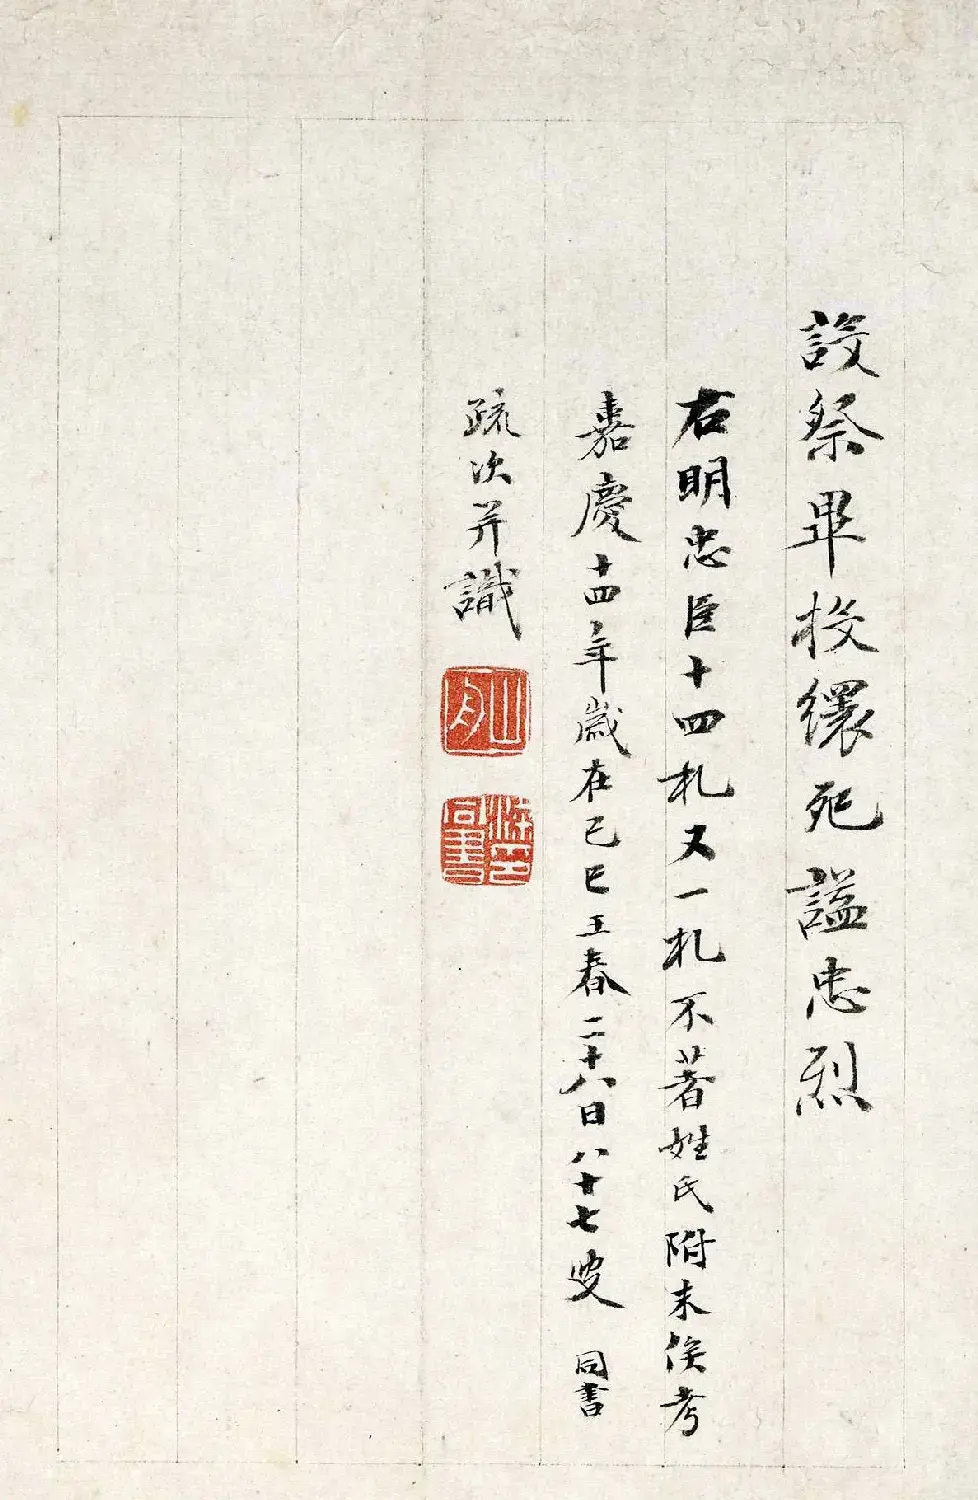 設祭畢投繯死謚忠烈
右明忠臣十四札又一札不著姓氏附末俟考
嘉慶十四年歲在己巳正春二十八日八十七叟同書
疏次并識
山舟
梁同書印